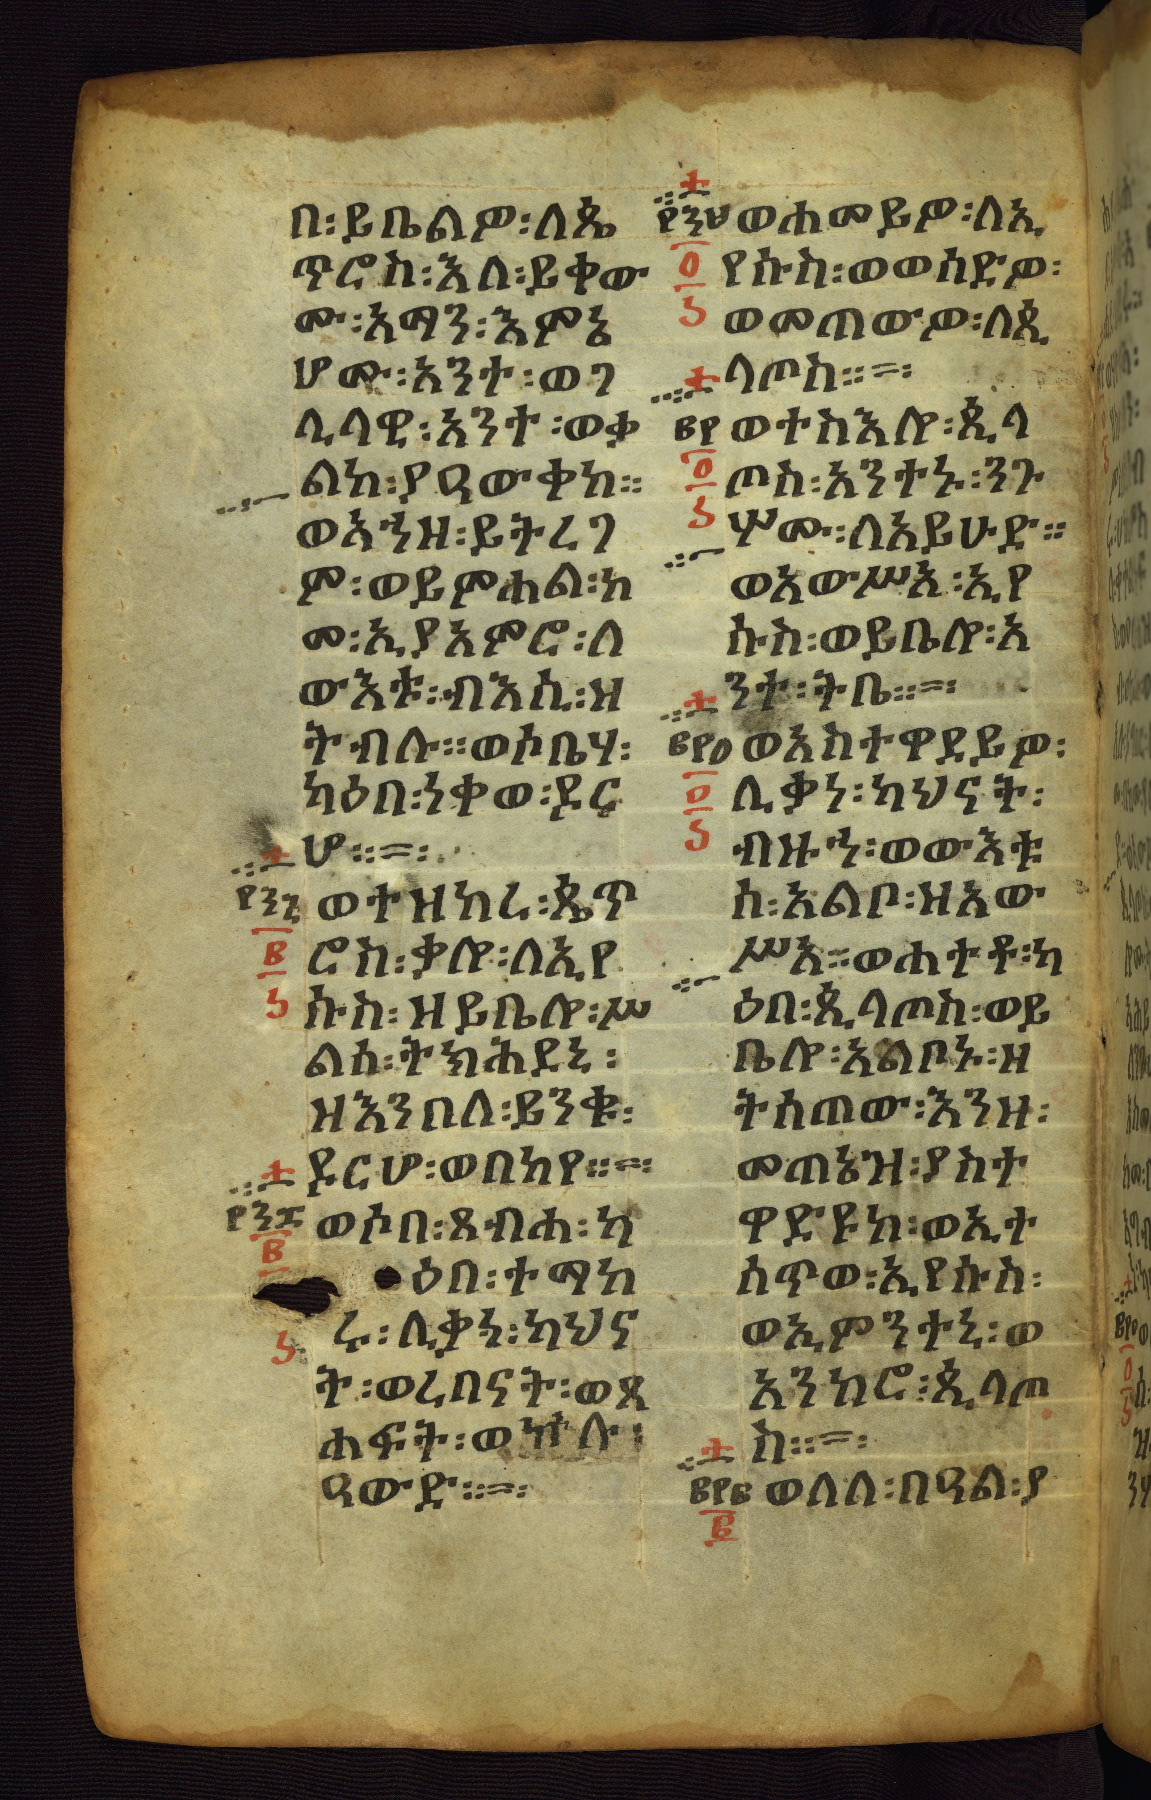 በ፡ይቤልዎ፡ለጴ
ጥሮስ፡እለ፡ይቀው
ሙ፡አማን፡እምኔ
ሆሙ፡አንተ፡ወገ
ሊላዊ፡አንተ፡ወቃ
ልከ፡ያዔውቀከ።
ወአኀዘ፡ይትረገ
ም፡ወይምሐል፡ከ
መ፡ኢያአምሮ፡ለ
ውእቱ፡ብእሲ፡ዝ
ትብሉ።ወሶቤሃ፡
ካዕበ፡ነቀወ፡ደር
ሆ።=፡
ወተዘከረ፡ጴጥ
ሮስ፡ቃሎ፡ለኢየ
ሱስ፡ዘይቤሎ፡ሥ
ልሰ፡ትክሕደኒ፡
ዘእንበለ፡ይንቁ፡
ደርሆ፡ወበከየ።=፡
ወሶበ፡ጸብሐ፡ካ
ዕበ፡ተማከ
ሩ፡ሊቃነ፡ካህና
ት፡ወረበናት፡ወጸ
ሐፍት፡ወኵሉ፡
ዔውድ።=፡
፲፳፰ ወሐመይዎ፡ለኢ
የሱስ፡ወወሰድዎ፡
ወመጠውዎ፡ለጲ
ላጦስ።=፡
ወተስእሎ፡ጲላ
ጦስ፡አንተኑ፡ንጉ
ሦሙ፡ለአይሁድ።
ወአውሥአ፡ኢየ
ሱስ፡ወይቤሎ፡አ
ንተ፡ትቤ።=፡
ወአስተዋደይዎ፡
ሊቃነ፡ካህናት፡
ብዙኀ፡ወውእቱ
ሰ፡አልቦ፡ዘአው
ሥአ።ወሐተቶ፡ካ
ዕበ፡ጲላጦስ፡ወይ
ቤሎ፡አልቦኑ፡ዘ
ትሰጠው፡እንዘ፡
መጠኔዝ፡ያስተ
ዋድዩከ፡ወኢተ
ሰጥወ፡ኢየሱስ፡
ወኢምንተኒ፡ወ
አንከሮ፡ጲላጦ
ስ።=፡
ወለለ፡በዓል፡ያ